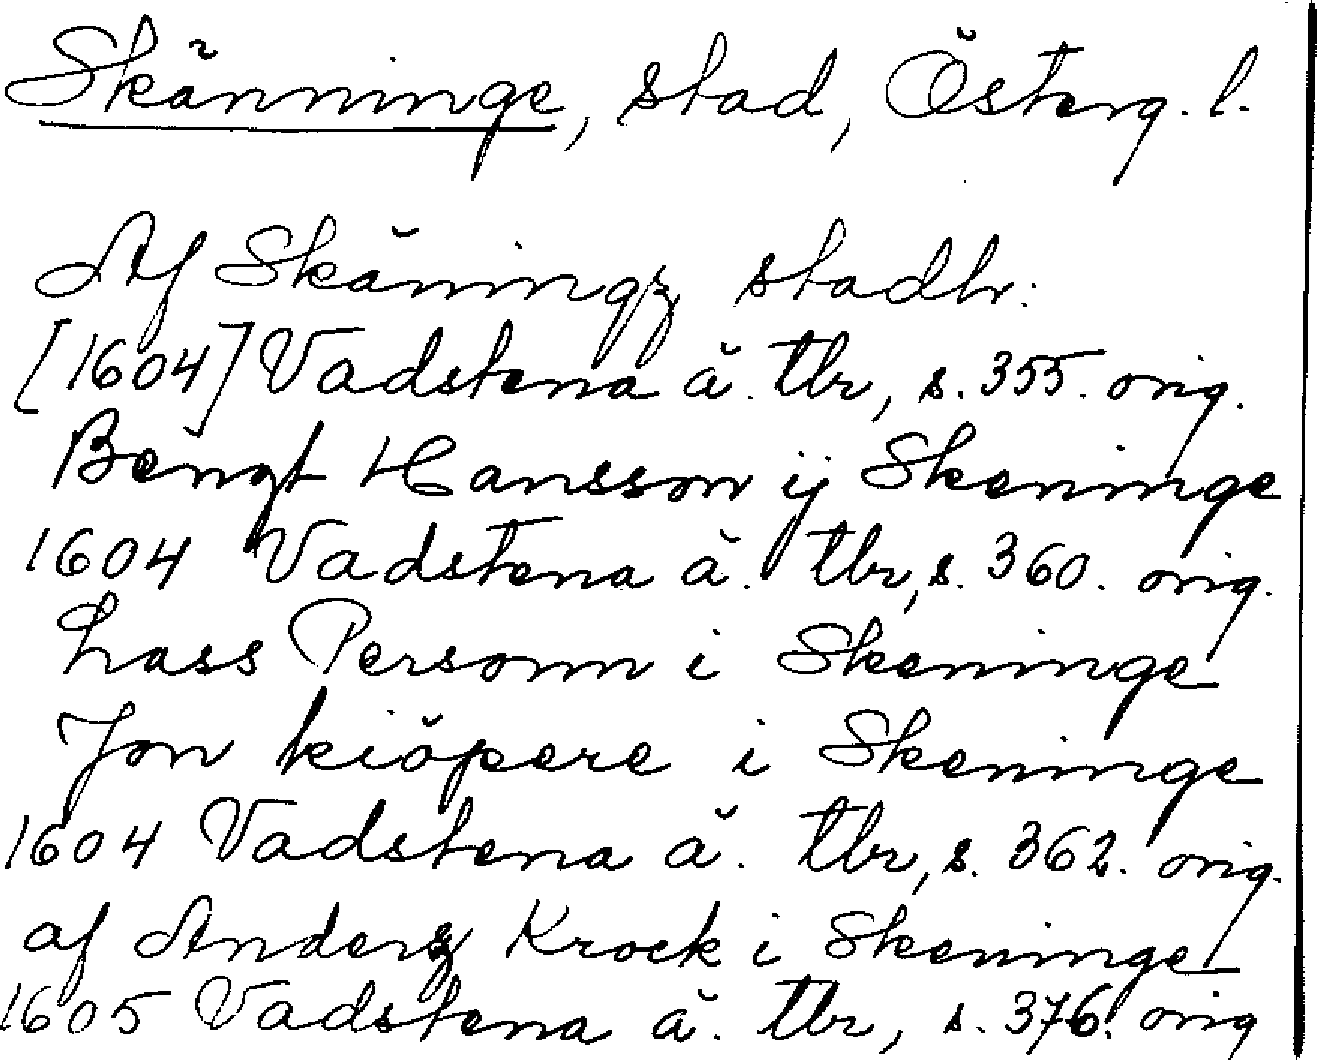 Skänninge, stad, Österg. l.
Af Skäningz stadh:
[1604] Vadstena ä. tbr, s. 355. orig.
Bengt Hansson ij Skeninge
1604 Vadstena ä. tbr, s. 360. orig.
Lass Personn i Skeninge
Jon kiöpere i Skeninge
1604 Vadstena ä. tbr, s. 362. orig.
af Anderz Krock i Skeninge
1605 Vadstena ä. tbr, s. 376. orig